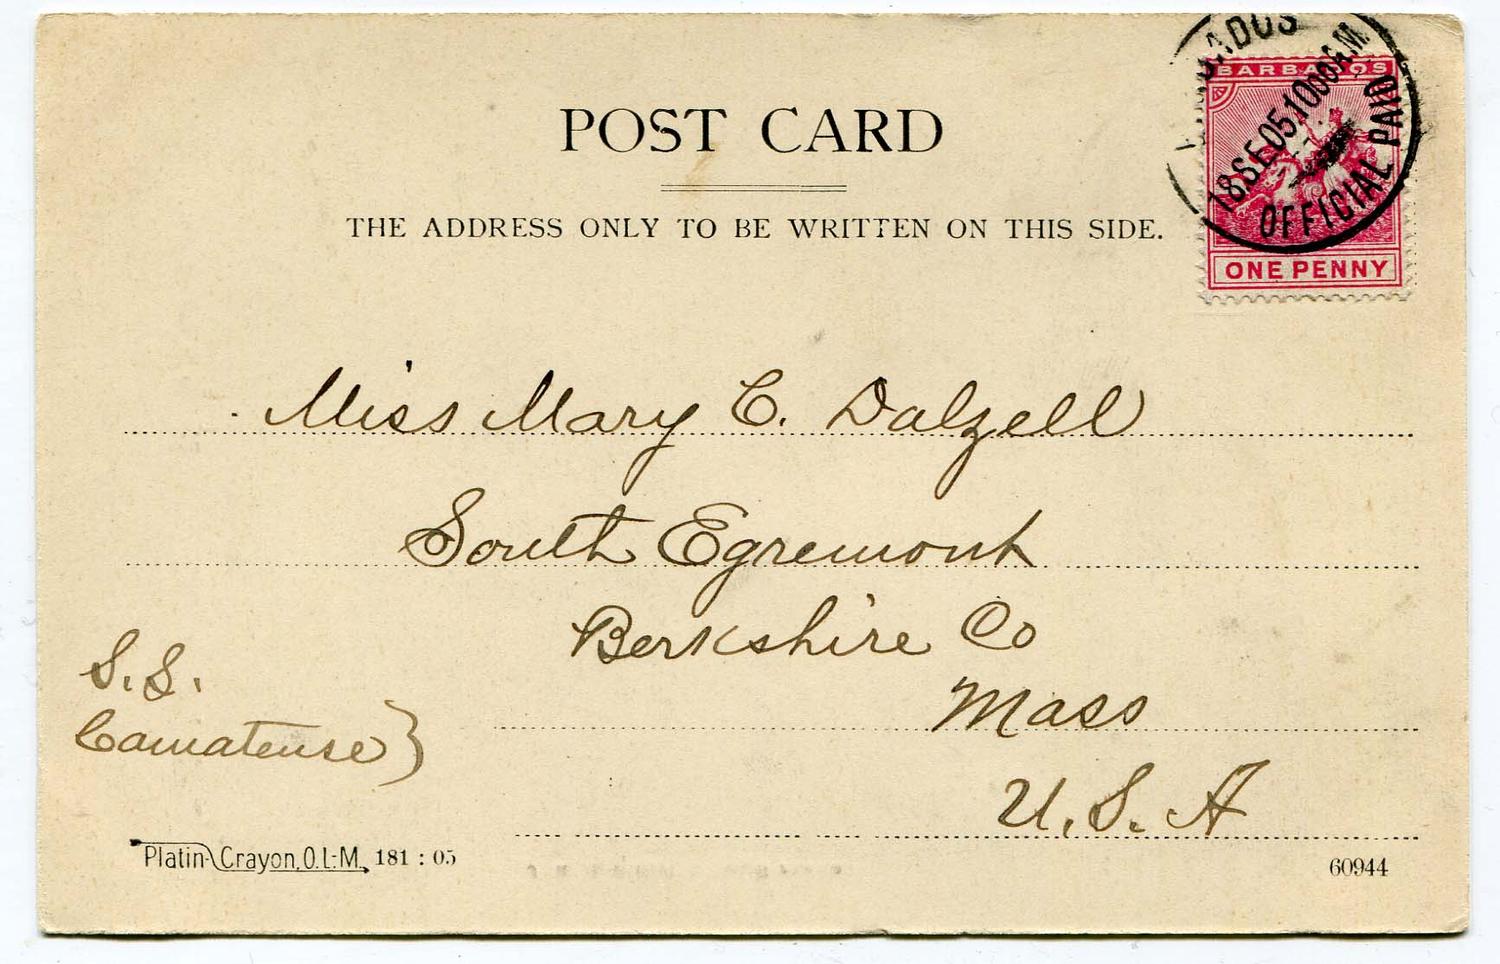 POST CARD
BARBADOS
18 SE 05 10 00 A.M.
OFFICIAL PAID
BARBADOS
ONE PENNY
THE ADDRESS ONLY TO BE WRITTEN ON THIS SIDE.
Miss Mary C. Dalzell
South Egremont
Berkshire Co
Mass
U.S.A
S.S.
Camatense }
Platin-Crayon, O.L-M, 181 : 05
60944